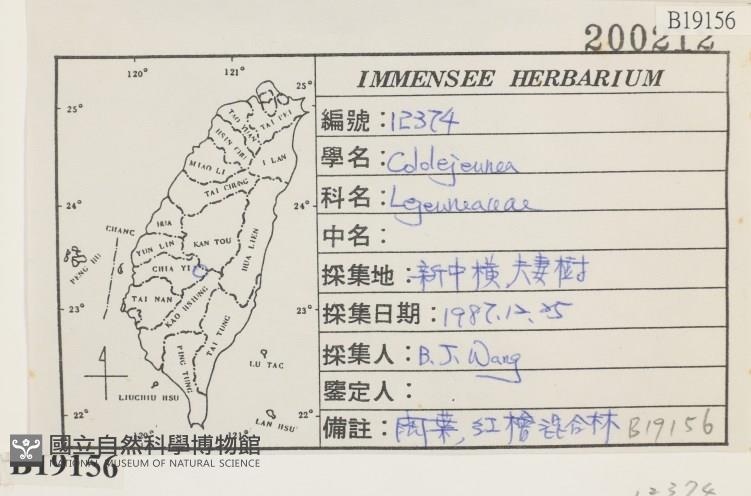 B19156
200212
IMMENSEE HERBARIUM
編號：12374
學名：Cololejeunea
科名：Lejeuneaceae
中名：
採集地：新中橫,夫妻樹
採集日期：1987.12.25
採集人：B.J. Wang
鑒定人：
備註：闊葉,紅檜混合林 B19156
120° 121° 25°
25°
TAI PEI
TAO YUAN
HSIN CHU
I LAN
MIAO LI
TAI CHUNG
24° 24°
CHANG HUA
HUA LIEN
KAN TOU
YUN LIN
PENG HU
CHIA YI
23° 23°
TAI NAN
KAO HSIUNG
TAI TUNG
PING TUNG
LU TAO
LIUCHIU HSU
LAN HSU
22° 22°
120° 121°
國立自然科學博物館
NATIONAL MUSEUM OF NATURAL SCIENCE
B19156
12374